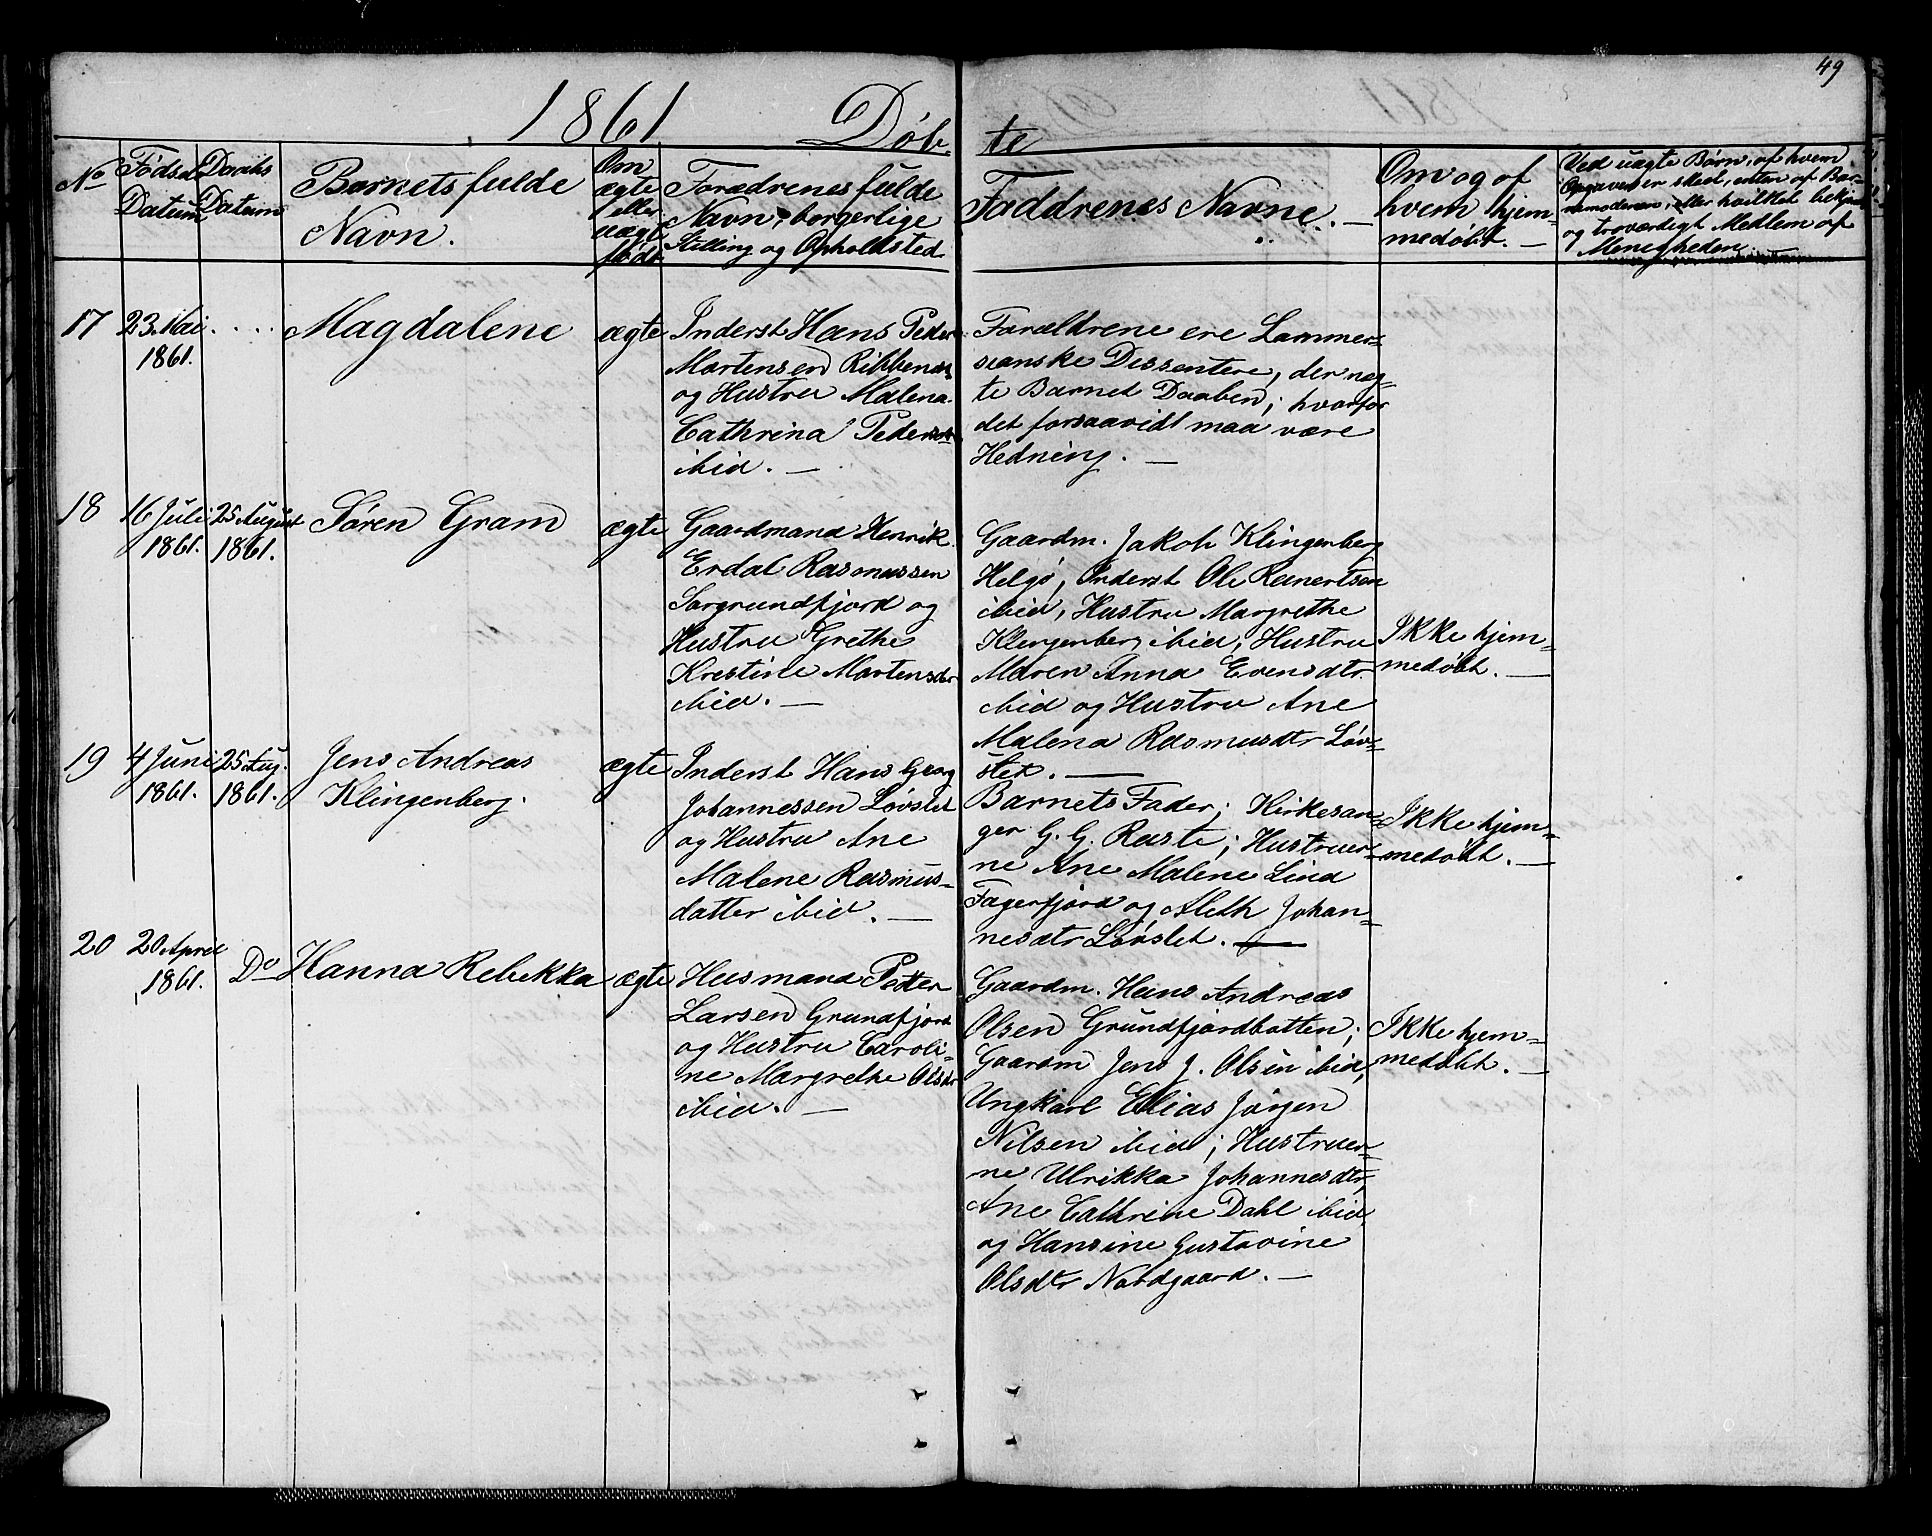 49
1861 Døbte
No
Fødsels Datum
Daabs Datum
Barnets fulde
Navn.
Om
ægte
eller
uægte
født
Forældrenes fulde
Navn, borgerlige
Stilling og Opholdsted
Faddrenes Navne. —
Om og af
hvem hjem-
medøbt. —
Ved uægte Børn, af hvem
Opgaven er skeet, enten af Bar-
nemoderen, eller hvilket bekjendt
og troværdigt Medlem af
Menigheden.
17
23 Mai
1861.
. . . .
Magdalene
ægte
Inderst Hans Peder
Mortensen Ribbenes
og Hustru Malena
Cathrina Pedersdtr
ibid. —
Forældrene ere Lammer-
sianske Dissentere, der næg-
te Barnet Daaben; hvorfor
det forsaavidt maa være
Hedning. —
18
16 Juli
1861.
25 August
1861.
Søren Gram
ægte
Gaardmand Henrik
Erdal Rasmussen
Sørgrundfjord og
Hustru Grethe
Krestine Martensdtr
ibid. —
Gaardm. Jakob Klingenberg
Helgø, Inderst Ole Reinertsen
ibid, Hustru Margrethe
Klingenberg ibid; Hustru
Maren Anna Evensdtr.
ibid og Hustru Ane
Malena Rasmusdtr Løv-
slet. —
Ikke hjem-
medøbt. —
19
4 Juni
1861.
25 Aug.
1861.
Jens Andreas
Klingenberg.
ægte
Inderst Hans Georg
Johannessen Løvslet
og Hustru Ane
Malene Rasmus-
datter ibid. —
Barnets Fader; Kirkesan-
ger G. G. Raste; Hustruer-
ne Ane Malene Lind
Fagerfjord og Aleth Johan-
nesdtr Løvslet. —
Ikke hjem-
medøbt. —
20
20 April
1861.
Do
Hanna Rebekka
ægte
Husmand Petter
Larsen Grundfjord
og Hustru Caroli-
ne Margrethe Olsdtr
ibid. —
Gaardm. Hans Andreas
Olsen Grundfjordbotten;
Gaardm Jens J. Olsen ibid,
Ungkarl Elias Jørgen
Nilsen ibid; Hustruer-
ne Ulrikka Johannesdtr,
Ane Cathrine Dahl ibid,
og Hansine Gustavine
Olsdtr Nordgaard. —
Ikke hjem-
medøbt. —